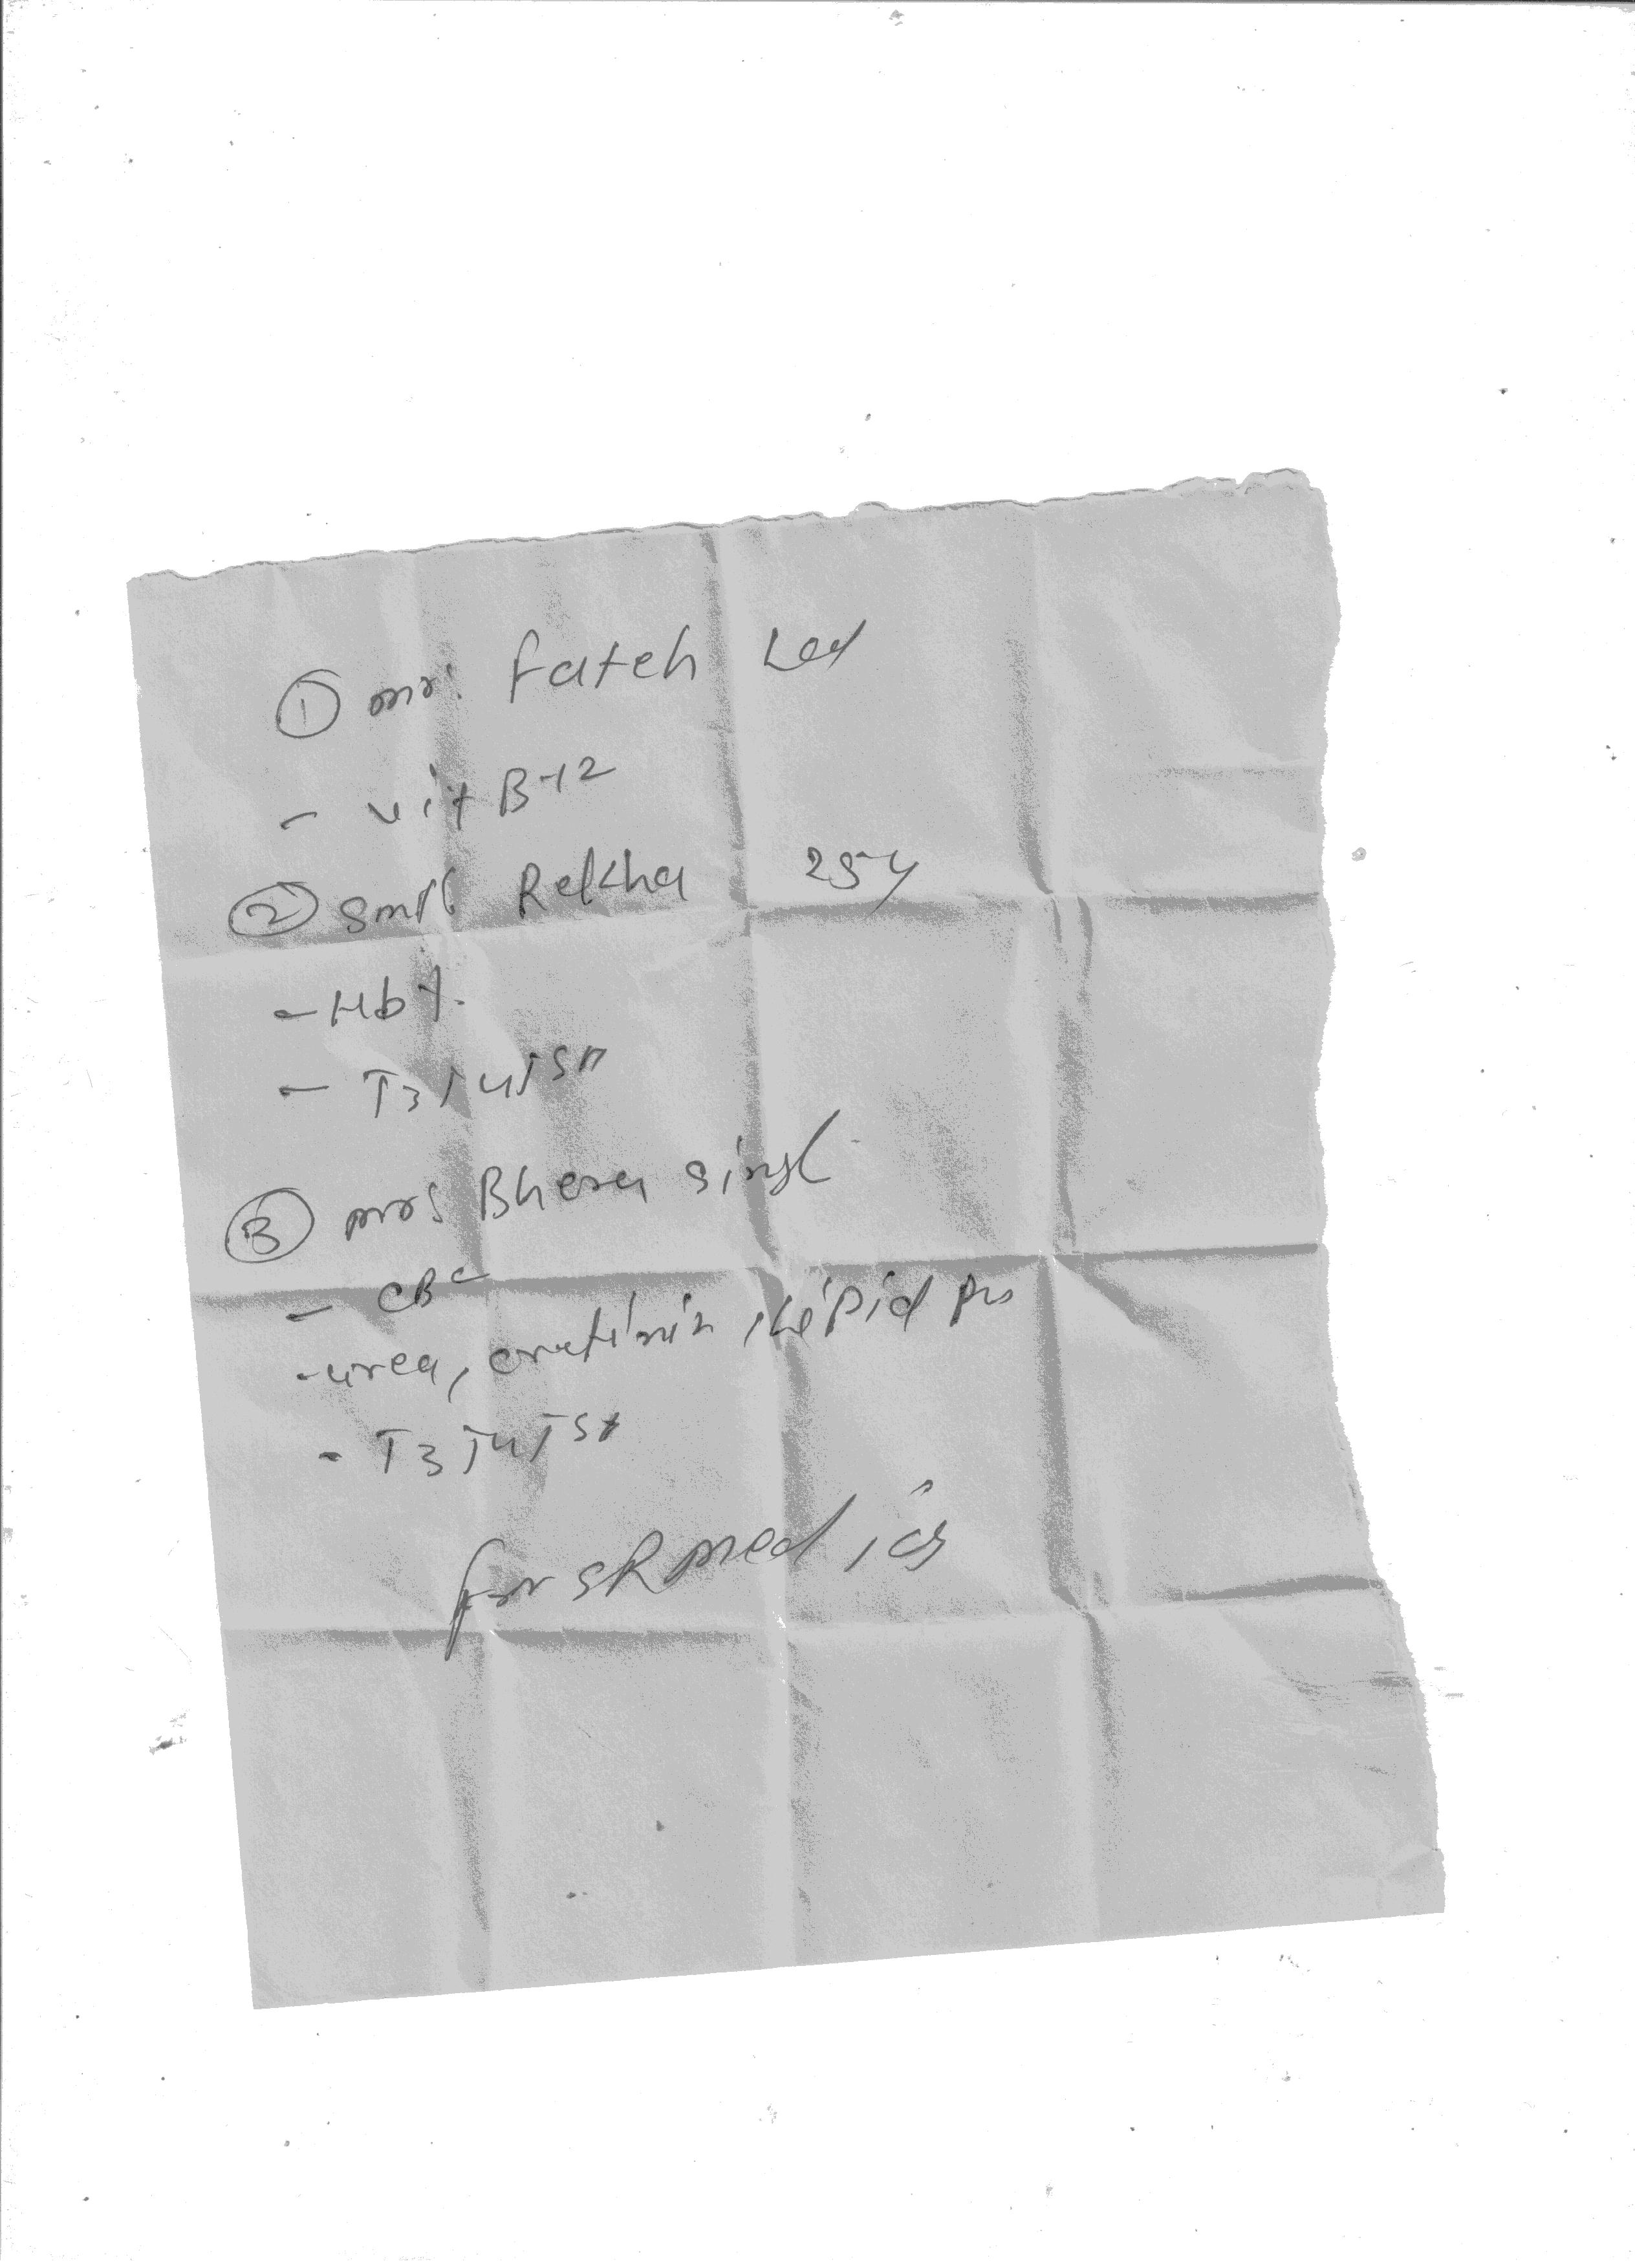 ① mr. Fateh Lal
- vit B-12
② Smt. Rekha 25y
- Hb%
- T3 T4 TSH
③ mrs Bhera singh
- CBC
- urea, cratinin, Lipid pro
- T3 T4 TSH
for SR medics